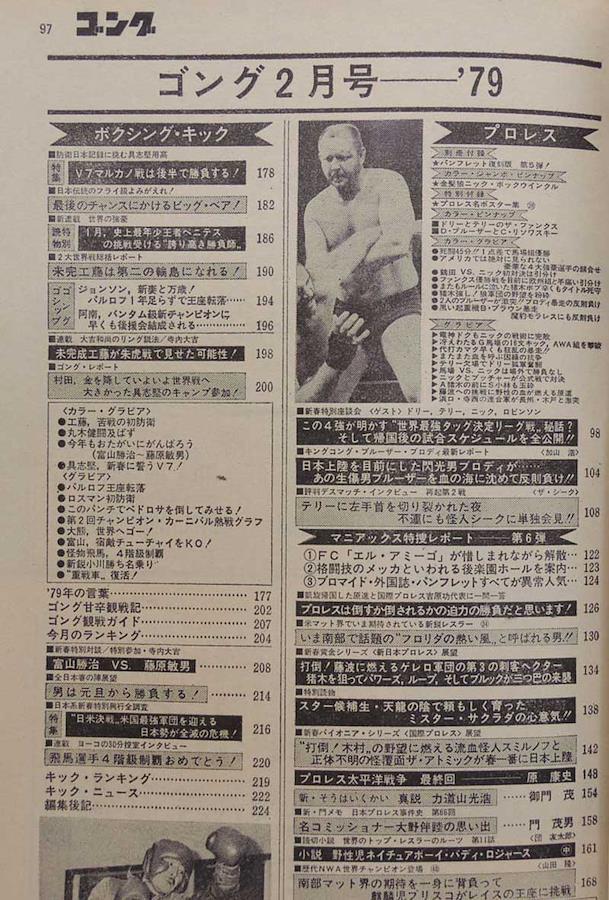 97 ゴング
ゴング2月号──'79
ボクシング・キック
■防衛日本記録に挑む具志堅用高
特集 V7マルカノ戦は後半で勝負する! 178
■日本伝統のフライ級よみがえれ!
最後のチャンスにかけるビッグ・ベア! 182
■新連載 世界の強豪
特別読物 1月、史上最年少王者ベニテス
の挑戦受ける"誇り高き勝負師" 186
■2大世界戦総括レポート
未完工藤は第二の輪島になれる! 190
ゴング ゴシップ
ジョンソン、新妻と万歳!
パルロフ1年足らずで王座転落…… 194
阿南、バンタム級新チャンピオンに
早くも後援会結成される………… 196
■連載 大吉和尚のリング説法/寺内大吉
未完成工藤が朱虎戦で見せた可能性! 198
■ゴング・レポート
村田、金を降していよいよ世界戦へ
大きかった具志堅のキャンプ参加! 200
〈カラー・グラビア〉
●工藤、苦戦の初防衛
●丸木健闘及ばず
●今年もおたがいにがんばろう
(富山勝治〜藤原敏男)
●具志堅、新春に誓うV7!
〈グラビア〉
●パルロフ王座転落
●ロスマン初防衛
●このパンチでペドロサを倒してみせる!
●第2回チャンピオン・カーニバル熱戦グラフ
●大熊、世界へゴー!
●富山、宿敵チューチャイをKO!
●怪物飛馬、4階級制覇
●新鋭小川勝ち名乗り
●"重戦車"復活!
'79年の言葉………… 177
ゴング甘辛観戦記………… 202
ゴング観戦ガイド………… 207
今月のランキング………… 204
■新春特別対談/特別参加・寺内大吉
富山勝治 VS. 藤原敏男…… 208
■全日本春の陣展望
男は元旦から勝負する!…… 214
■日本系新春特別興行全調査
特集 "日米決戦"米国最強軍団を迎える
日本勢が全滅の危機! 216
■連載 ヨーコの30分控室インタビュー
飛馬選手4階級制覇おめでとう! 220
キック・ランキング………… 219
キック・ニュース………… 222
編集後記………… 224
プロレス
別冊付録
★パンフレット復刻版 第5弾!
カラー・ジャンボ・ピンナップ
★金髪狼ニック・ボックウインクル
特別付録
★プロレス名ポスター集
カラー・ピンナップ
■ドリーとテリーのザ・ファンクス
■D・ブルーザーとC・リソワスキー
カラー・グラビア
●死闘45分!1点差で馬場組優勝
●アメリカでは絶対に見られない
豪華な4大強豪選手の顔合せ
●鶴田 VS. ニック初対決は引分け
●またもルールに泣いた猪木ボブ卒くもタイトル死守
●猪木強し!狼軍団の野望を粉砕
グラビア
▶馬場 VS. ニックは場外で勝負なし
▶テリー欠場でドリー孤軍奮闘
■新春特別座談会 〈ゲスト〉ドリー、テリー、ニック、ロビンソン
この4強が明かす"世界最強タッグ決定リーグ戦"秘話?
そして帰国後の試合スケジュールを全公開!! 98
■キングコング・ブルーザー・ブロディ最新レポート 〈加山 浩〉
日本上陸を目前にした閃光男ブロディが……
あの生傷男ブルーザーを血の海に沈めて反則負け!! 104
■評判デスマッチ・インタビュー 再起第2戦 〈ザ・シーク〉
テリーに左手首を切り裂かれた夜
不運にも怪人シークに単独会見!! 108
マニアックス特捜レポート──第6弾
①FC「エル・アミーゴ」が惜しまれながら解散… 122
②格闘技のメッカといわれる後楽園ホールを案内… 123
③ブロマイド・外国誌・パンフレットすべてが異常人気… 124
■凱旋帰国した原進と国際プロレス吉原功代表に一問一答
プロレスは倒すか倒されるかの迫力の勝負だと思います! 126
■米マット界でいま期待されている新鋭レスラー
いま南部で話題の"フロリダの熱い風"と呼ばれる男!! 130
■新春黄金シリーズ〈新日本プロレス〉展望
打倒!藤波に燃えるゲレロ軍団の第3の刺客ヘクター
猪木を狙ってパワーズ、ループ、そしてブルックが三つ巴の来襲 134
■特別読物
スター候補生・天龍の陰で頼もしく育った
ミスター・サクラダの心意気!! 138
■新春パイオニア・シリーズ〈国際プロレス〉展望
"打倒!木村"の野望に燃える流血怪人スミルノフと
正体不明の怪覆面ザ・アトミックが春一番に日本上陸 142
プロレス太平洋戦争 最終回──原 康史 148
新・そうはいくかい 真説 力道山光浩……御門 茂 154
■新・門メモ 日本プロレス事件史 第86回
名コミッショナー大野伴睦の思い出……門 茂男 158
■読切小説 世界のトップ・レスラーのルーツ 第11話 〈団 友太郎〉
小説 野性児ネイチュアボーイ・バディ・ロジャース 中 161
■歴代NWA世界チャンピオン登場 〈山田 隆〉
南部マット界の期待を一身に背負って
麒麟児ブリスコがレイスの王座に挑戦 168